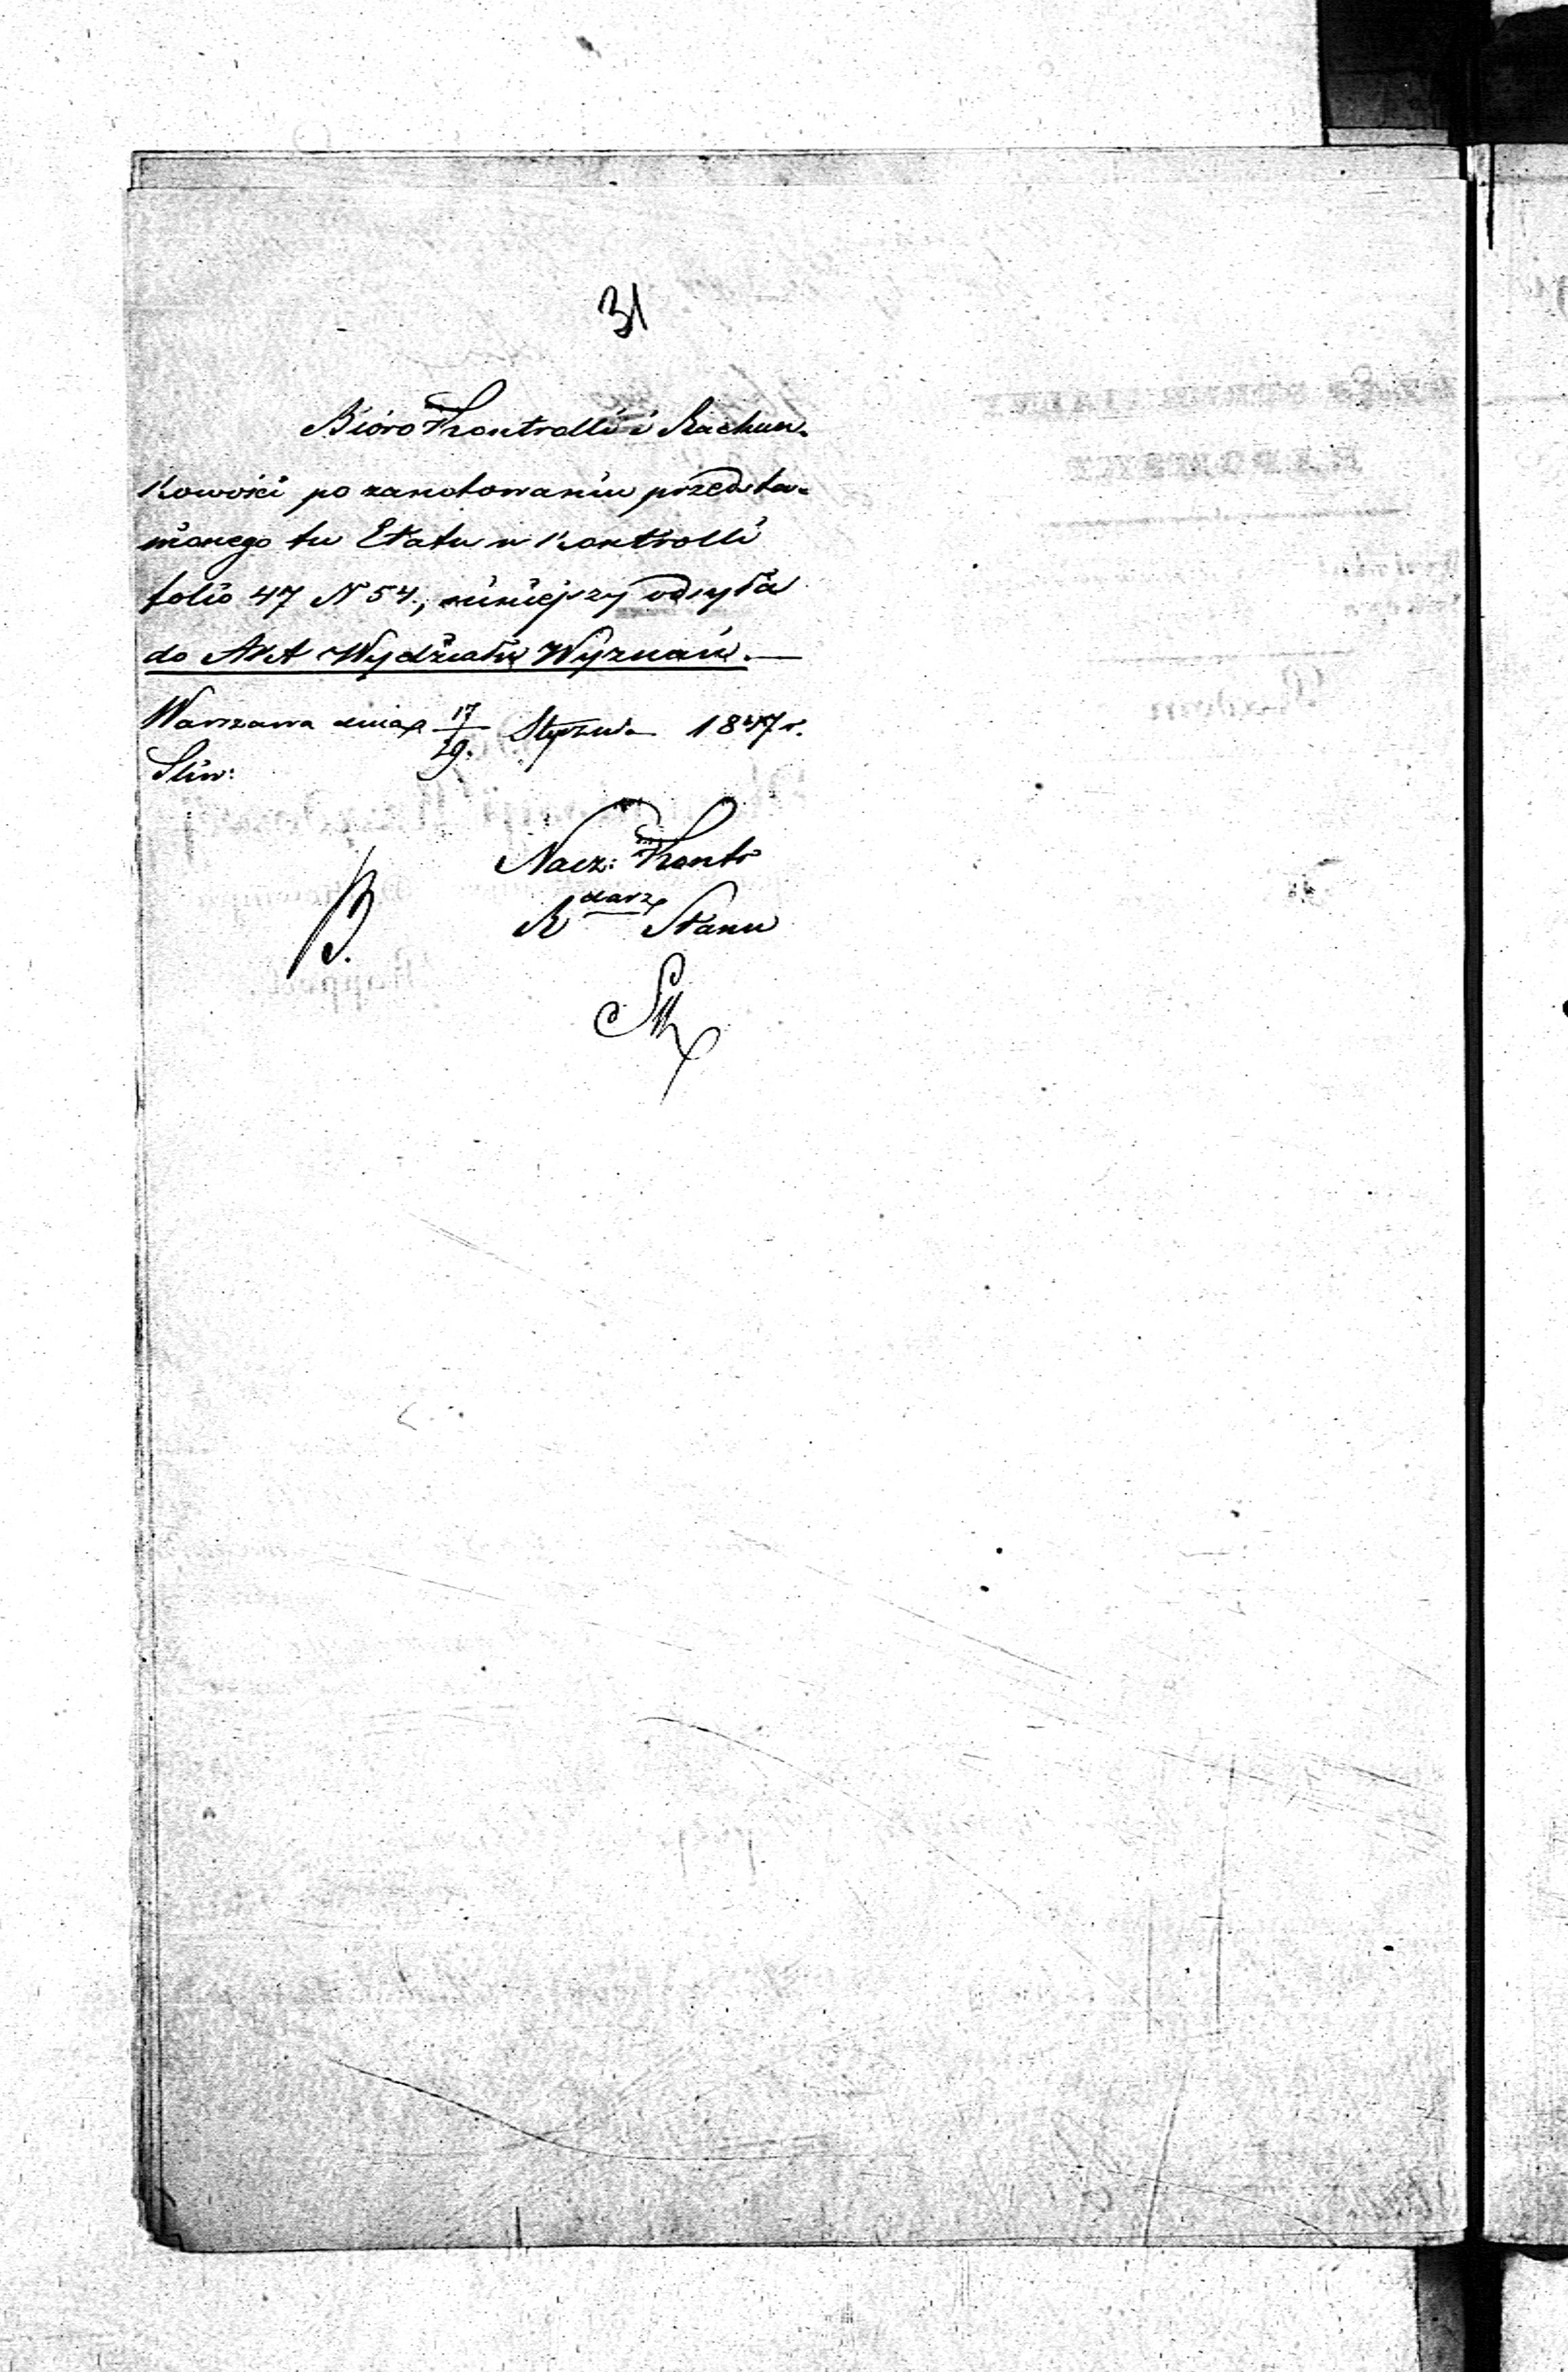 31
Bióro Kontrolli i Rachun-
kowości po zanotowaniu przedsta-
wionego tu Etatu w Kontrolli
folio 47 N 54, niniejszy odsyła
do Akt Wydziału Wyznań. —
Warszawa dnia 17/29. Stycznia 1847 r.
Sliw:
Nacz: Kontr
B. R darz Stanu